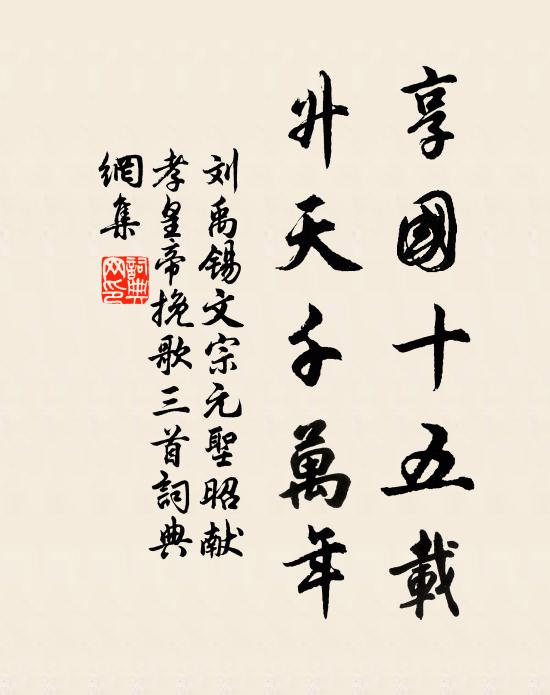 享國十五載
升天千萬年
刘禹锡文宗元聖昭献
孝皇帝挽歌三首詞典
網集
詞典
网印